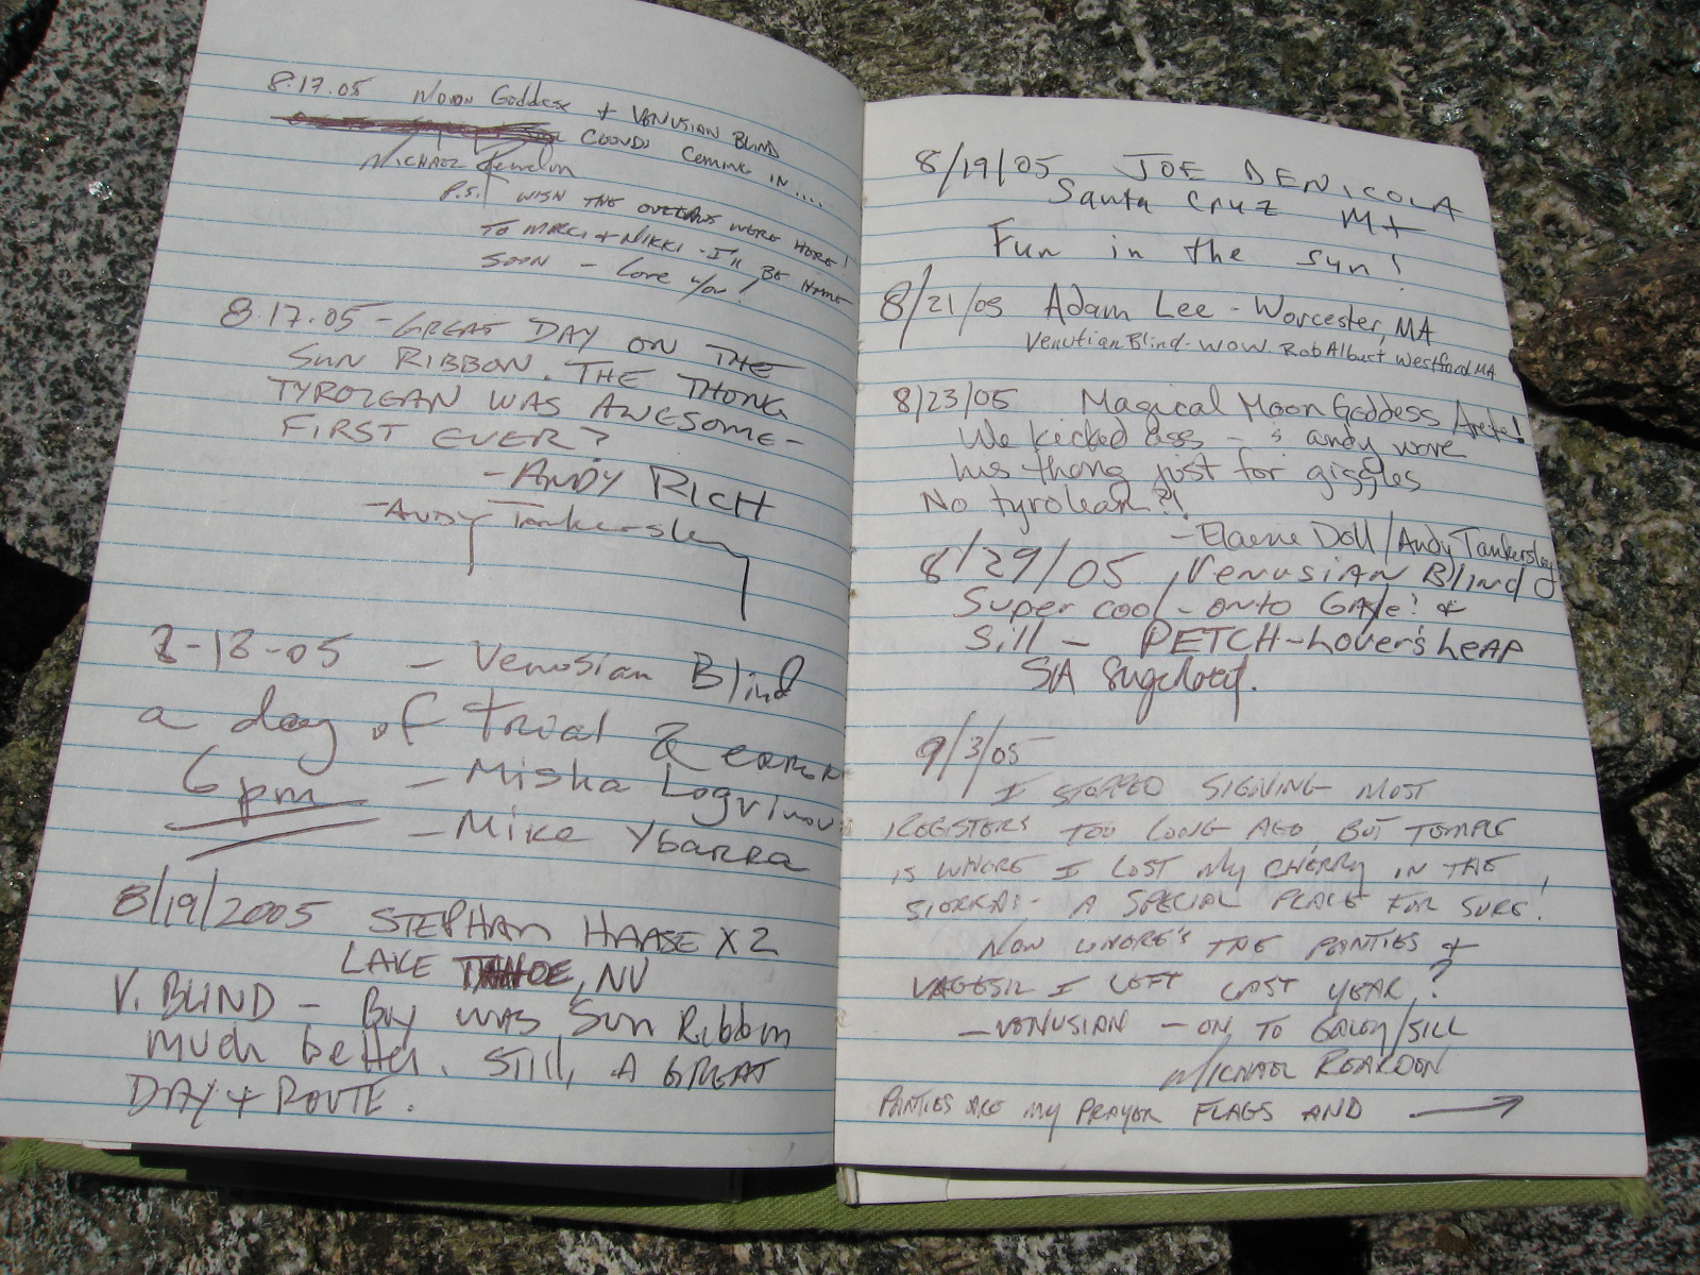 8.17.05 Moon Goddess + VENUSIAN BLIND
CLOUDS COMING IN....
MICHAEL Reardon
P.S. WISH THE OUTLAWS WERE HERE!
TO MARCI + NIKKI - I'll BE HOME
SOON - Love you!
8.17.05 - GREAT DAY ON THE
SUN RIBBON. THE THONG
TYROLEAN WAS AWESOME -
FIRST EVER?
- ANDY RICH
- Andy Tankersley
8-18-05 - Venusian Blind
a day of trial & error
6pm - Misha Logvinov
- Mike Ybarra
8/19/2005 STEPHAN HAASE X 2
LAKE TAHOE, NV
V. BLIND - Boy was Sun Ribbon
much better. Still, A GREAT
DAY + ROUTE.
8/19/05 JOE DENICOLA
Santa Cruz Mt
Fun in the sun!
8/21/05 Adam Lee - Worcester, MA
Venutian Blind - WOW. Rob Albert Westford MA
8/23/05 Magical Moon Goddess Arete!
We kicked ass - & andy wore
his thong just for giggles
No tyrolean?!
- Elaine Doll / Andy Tankersley
8/29/05 Venusian Blind
Super cool - onto Gayle! &
Sill - PETCH - Lover's LEAP
S/A Sugarloaf.
9/3/05
I STOPPED SIGNING MOST
REGISTERS TOO LONG AGO, BUT TEMPLE
IS WHERE I LOST MY CHERRY IN THE
SIERRAS - A SPECIAL PLACE FOR SURE!
NOW WHERE'S THE PANTIES +
VAGESIL I LEFT LAST YEAR?
- VENUSIAN - ON TO GALEY/SILL
MICHAEL REARDON
PANTIES ARE MY PRAYER FLAGS AND →